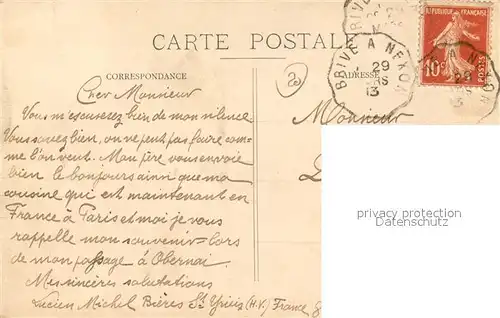 CARTE POSTALE
CORRESPONDANCE
ADRESSE
RÉPUBLIQUE FRANÇAISE
POSTES
10c
BRIVE A NEXON
29
13
2
Cher Monsieur
Vous m'escuserez bien de mon silence
Vous savez bien, on ne peut pas faire com-
me l'on veut. Mon père vous envoie
bien le bonjours ainn que ma
cousine qui est maintenant en
France à Paris et moi je vous
rappelle mon souvenir lors
de mon passage à Obernai.
Mes sincères salutations
Lucien Michel Bières St Yrieix (H.V.) France
Monsieur
privacy protection
Datenschutz